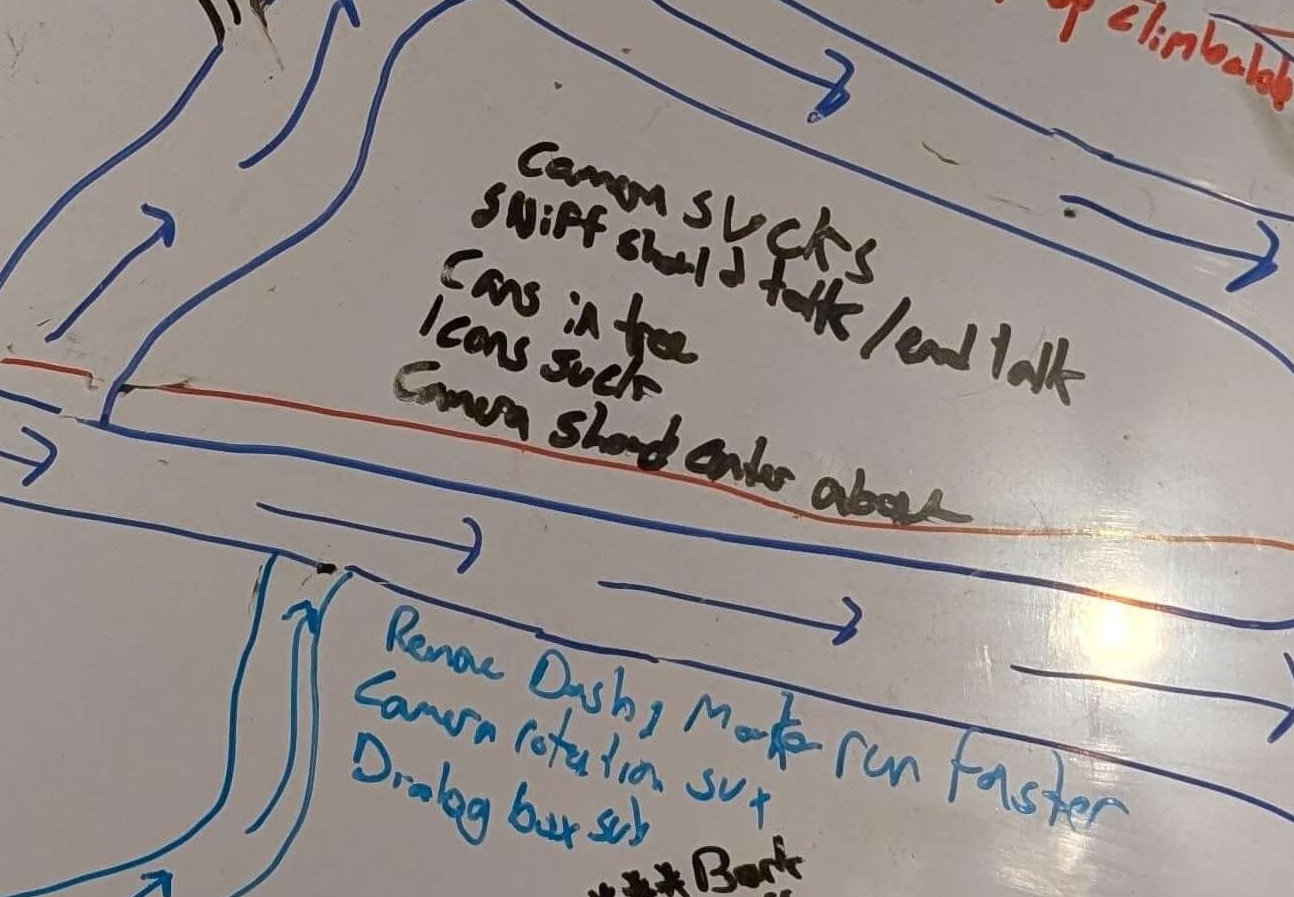 op climbalob
Camera sucks
Sniff should talk / end talk
Cans in tree
Icons suck
Camera should center about
Remove Dash, Make run faster
Camera rotation
Dialog box
***Bark